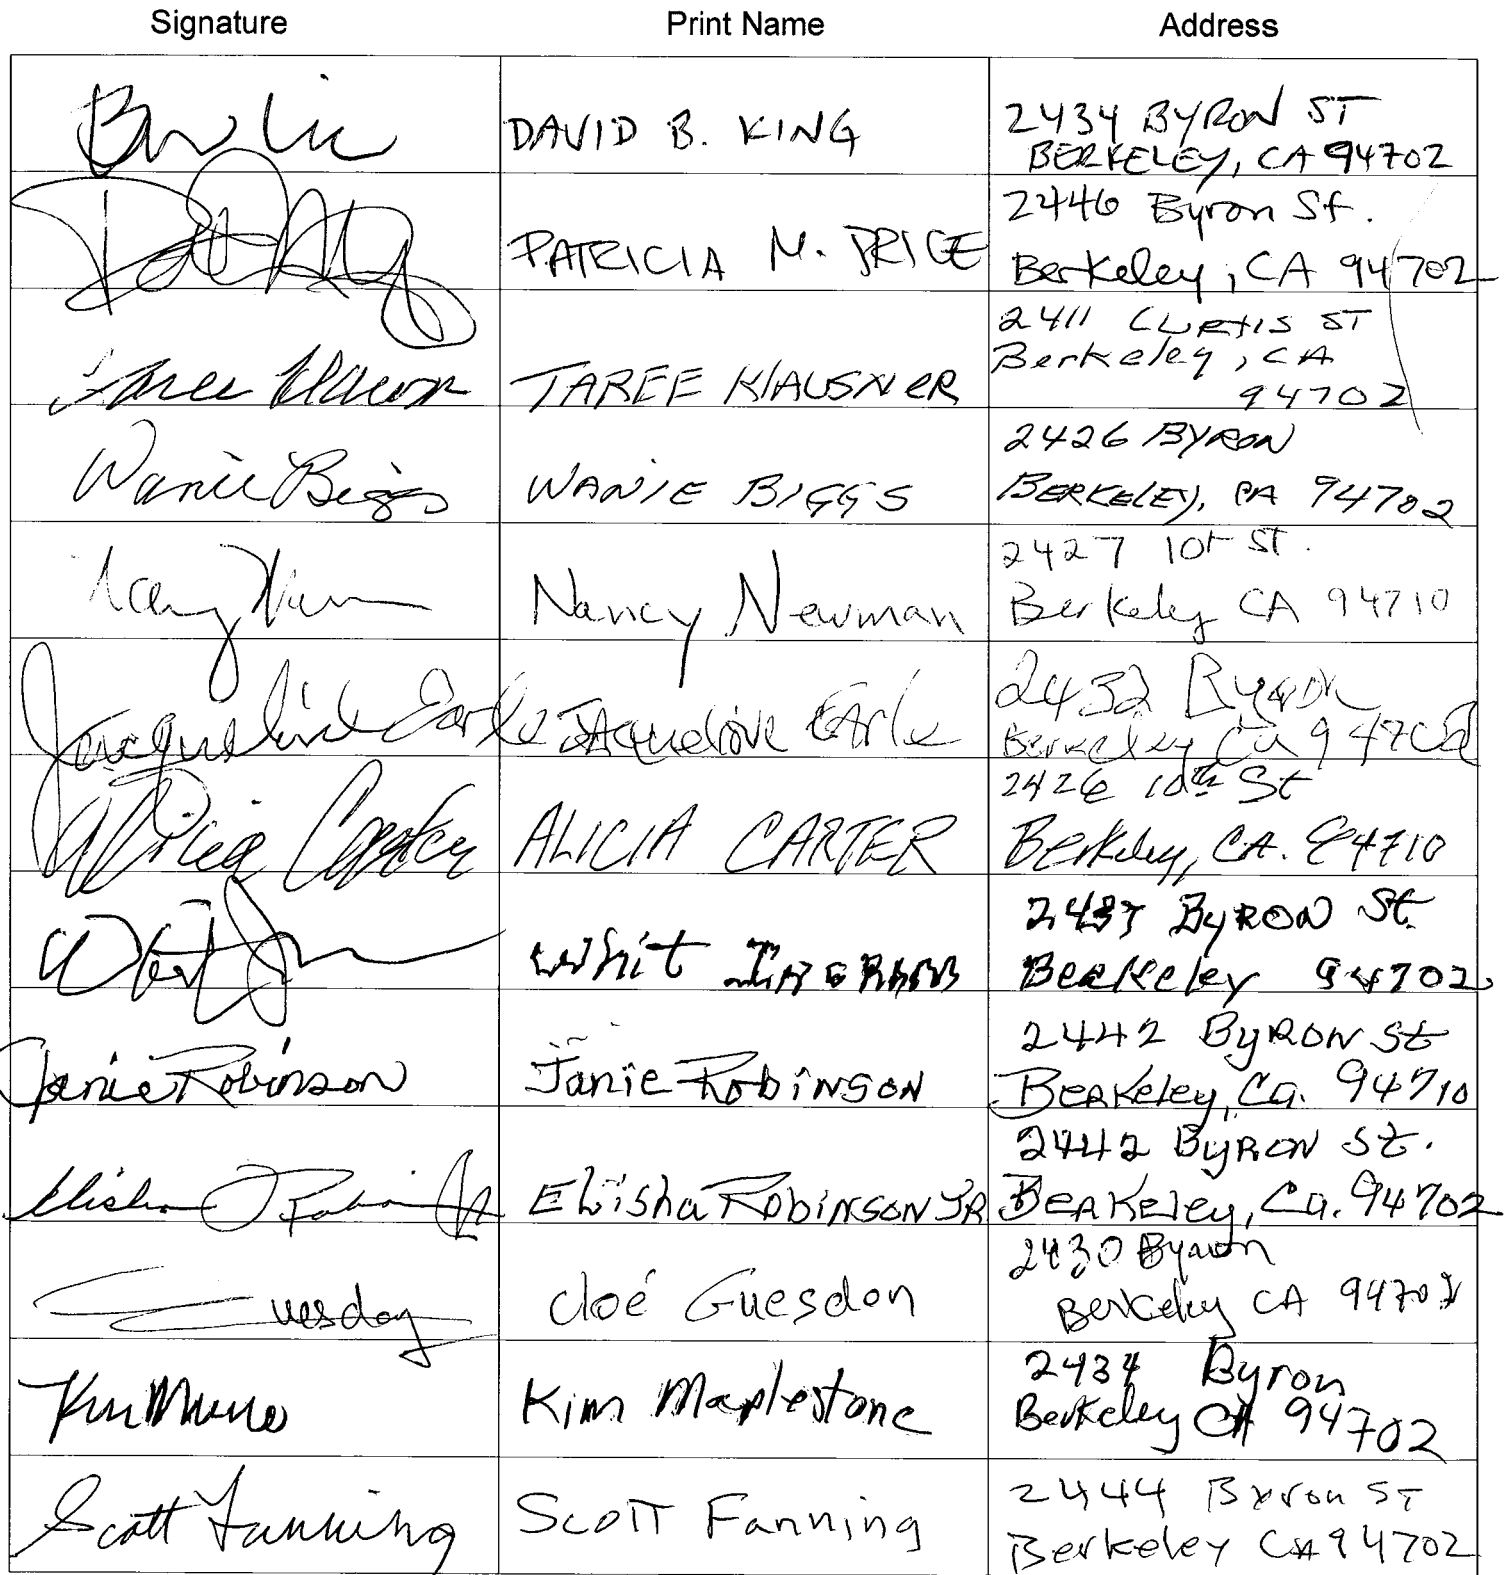 Signature Print Name Address
DAVID B. KING
2434 BYRON ST
BERKELEY, CA 94702
PATRICIA M. PRICE
2446 Byron St.
Berkeley, CA 94702
TAREE KLAUSNER
2411 CURTIS ST
Berkeley, CA
94702
Wanie Biggs WANIE BIGGS
2426 BYRON
BERKELEY, CA 94702
Nancy Newman
2427 10th ST.
Berkeley CA 94710
Jacqueline Earle JAcqueline EArle
2432 Byron
Berkeley Ca 94702
Alicia Carter ALICIA CARTER
2426 10th St
Berkeley, CA. 94710
Whit INGRAM
2437 BYRON St.
Berkeley 94702
Janie Robinson Janie RobiNSON
2442 ByRON St
BeRKeley, Ca. 94710
Elisha RobiNSON JR
2442 ByRON St.
BeRKeley, Ca. 94702
Tuesday Cloé Guesdon
2430 Byron
Berkeley CA 94702
Kim Maplestone
2434 Byron
Berkeley CA 94702
Scott Fanning Scott Fanning
2444 Byron ST
Berkeley CA 94702